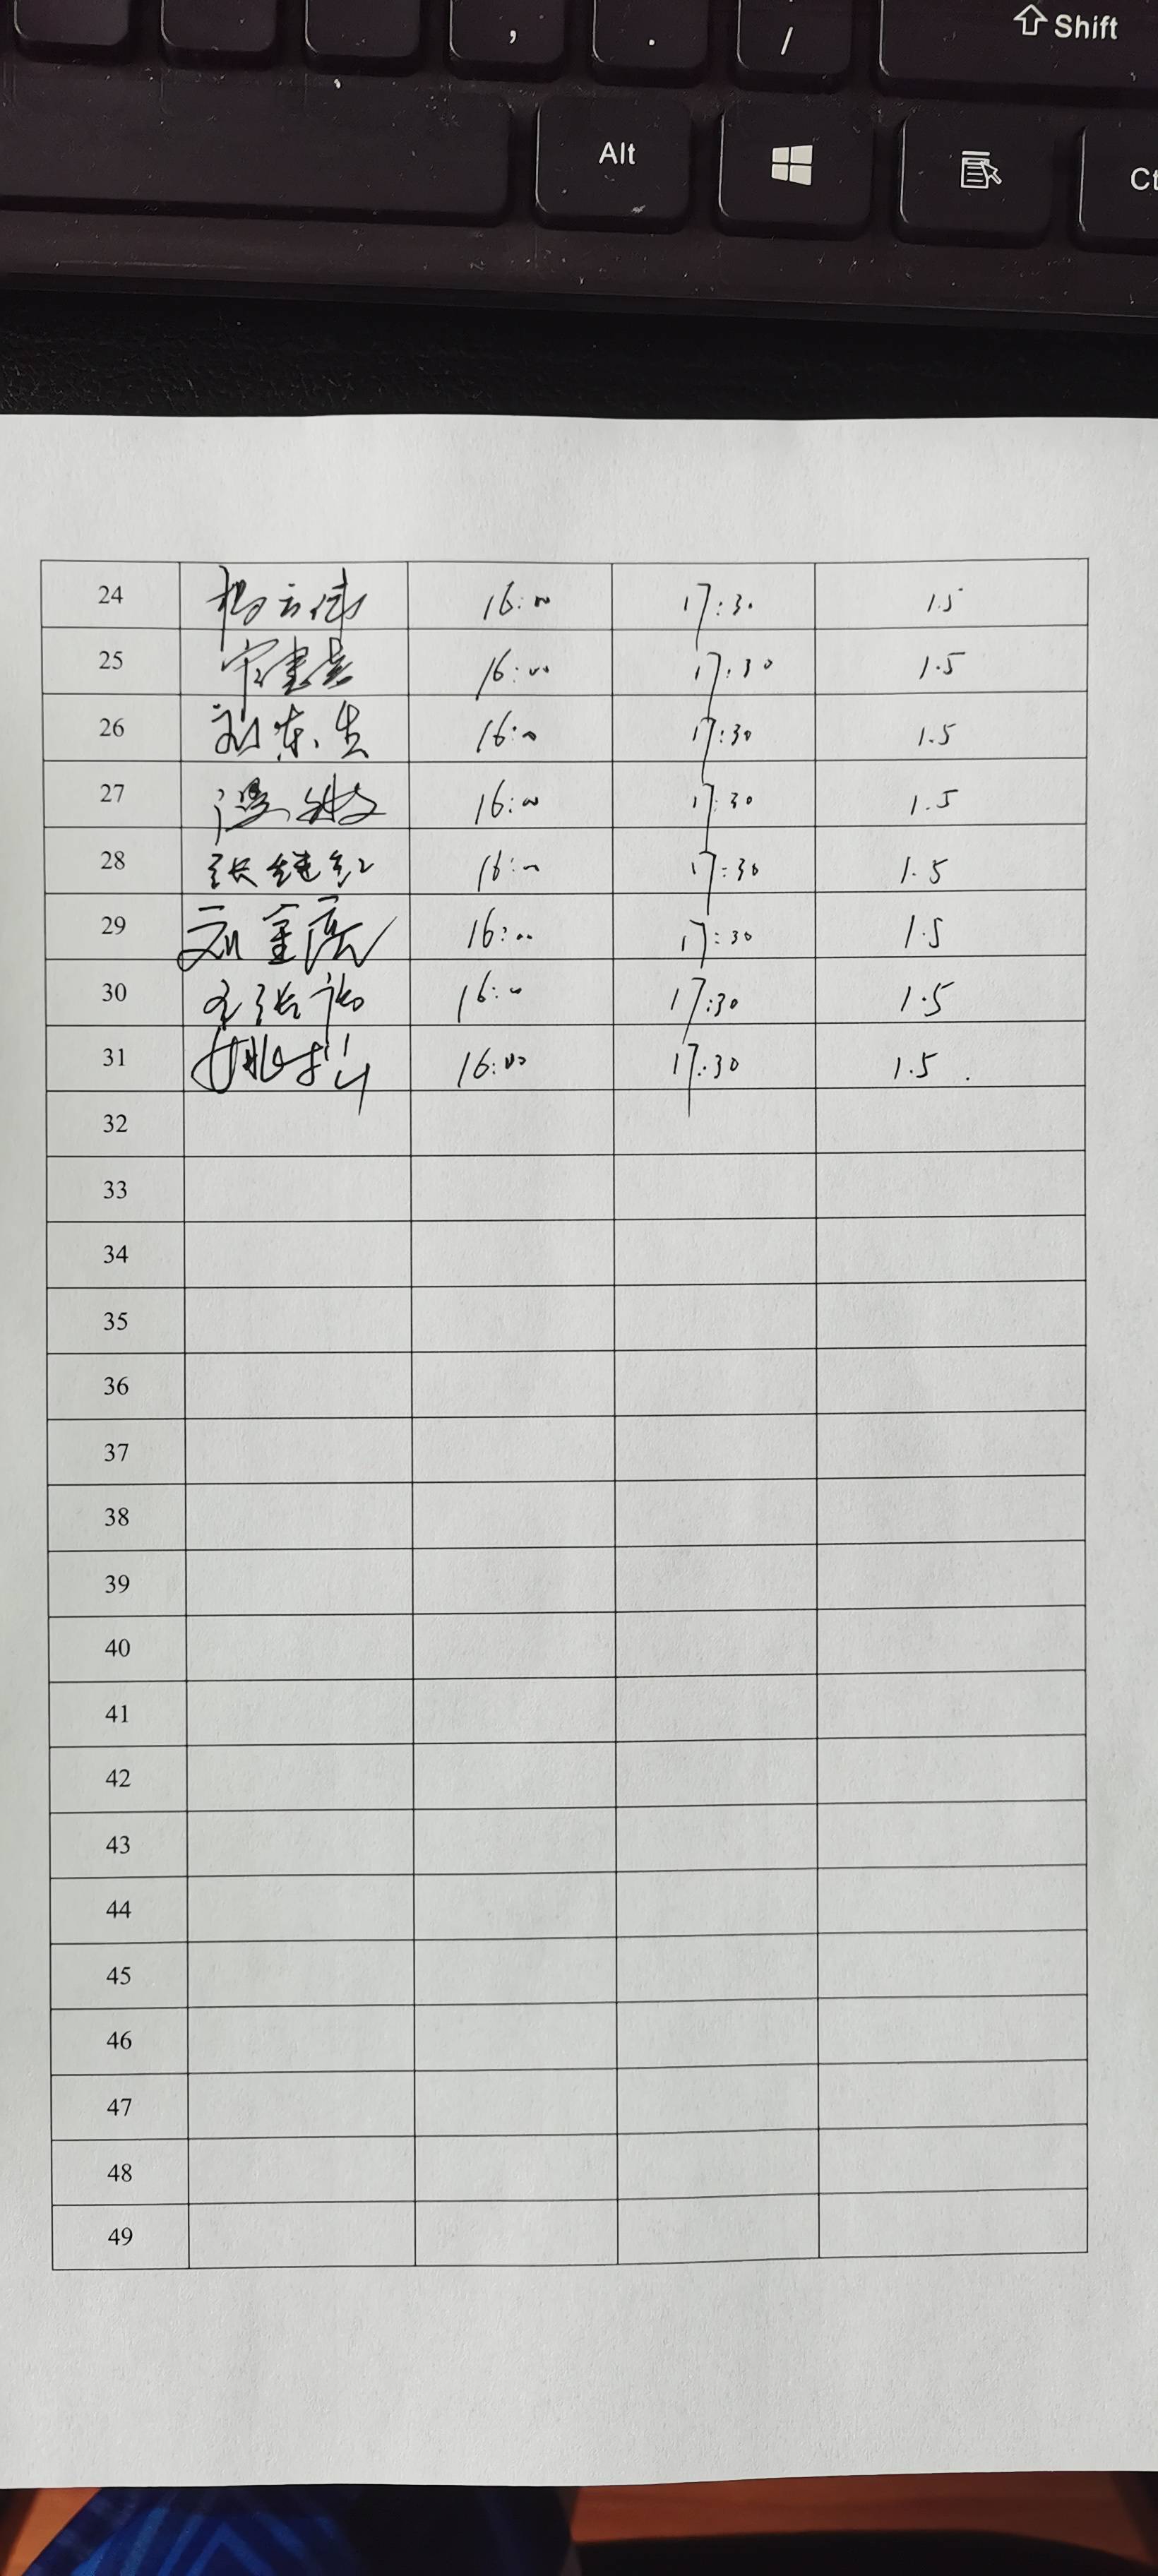 , . / Shift
Alt Ct
24 杨云伟 16:00 17:30 1.5
25 宋建景 16:00 17:30 1.5
26 刘东生 16:00 17:30 1.5
27 16:00 17:30 1.5
28 张继红 16:00 17:30 1.5
29 刘金亮 16:00 17:30 1.5
30 16:00 17:30 1.5
31 16:00 17:30 1.5
32
33
34
35
36
37
38
39
40
41
42
43
44
45
46
47
48
49